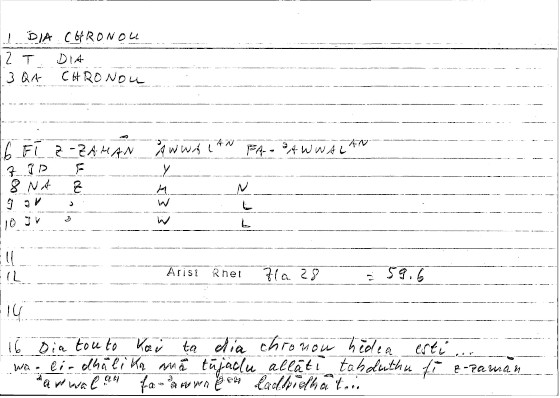 1 DIA CHRONOU
2 T DIA
3 QA CHRONOU
6 FĪ Z-ZAMĀN ʾAWWALAN FA-ʾAWWALAN
7 JP F Y
8 NA Z M N
9 JV ʾ W L
10 JV ʾ W L
11
12 Arist Rhet 71a 28 = 59.6
14
16 Dia touto kai ta dia chronou hēdea esti ...
wa-li-dhālika mā tūjadu allātī taḥduthu fī z-zamān
ʾawwalan fa-ʾawwalan ladhīdhāt...